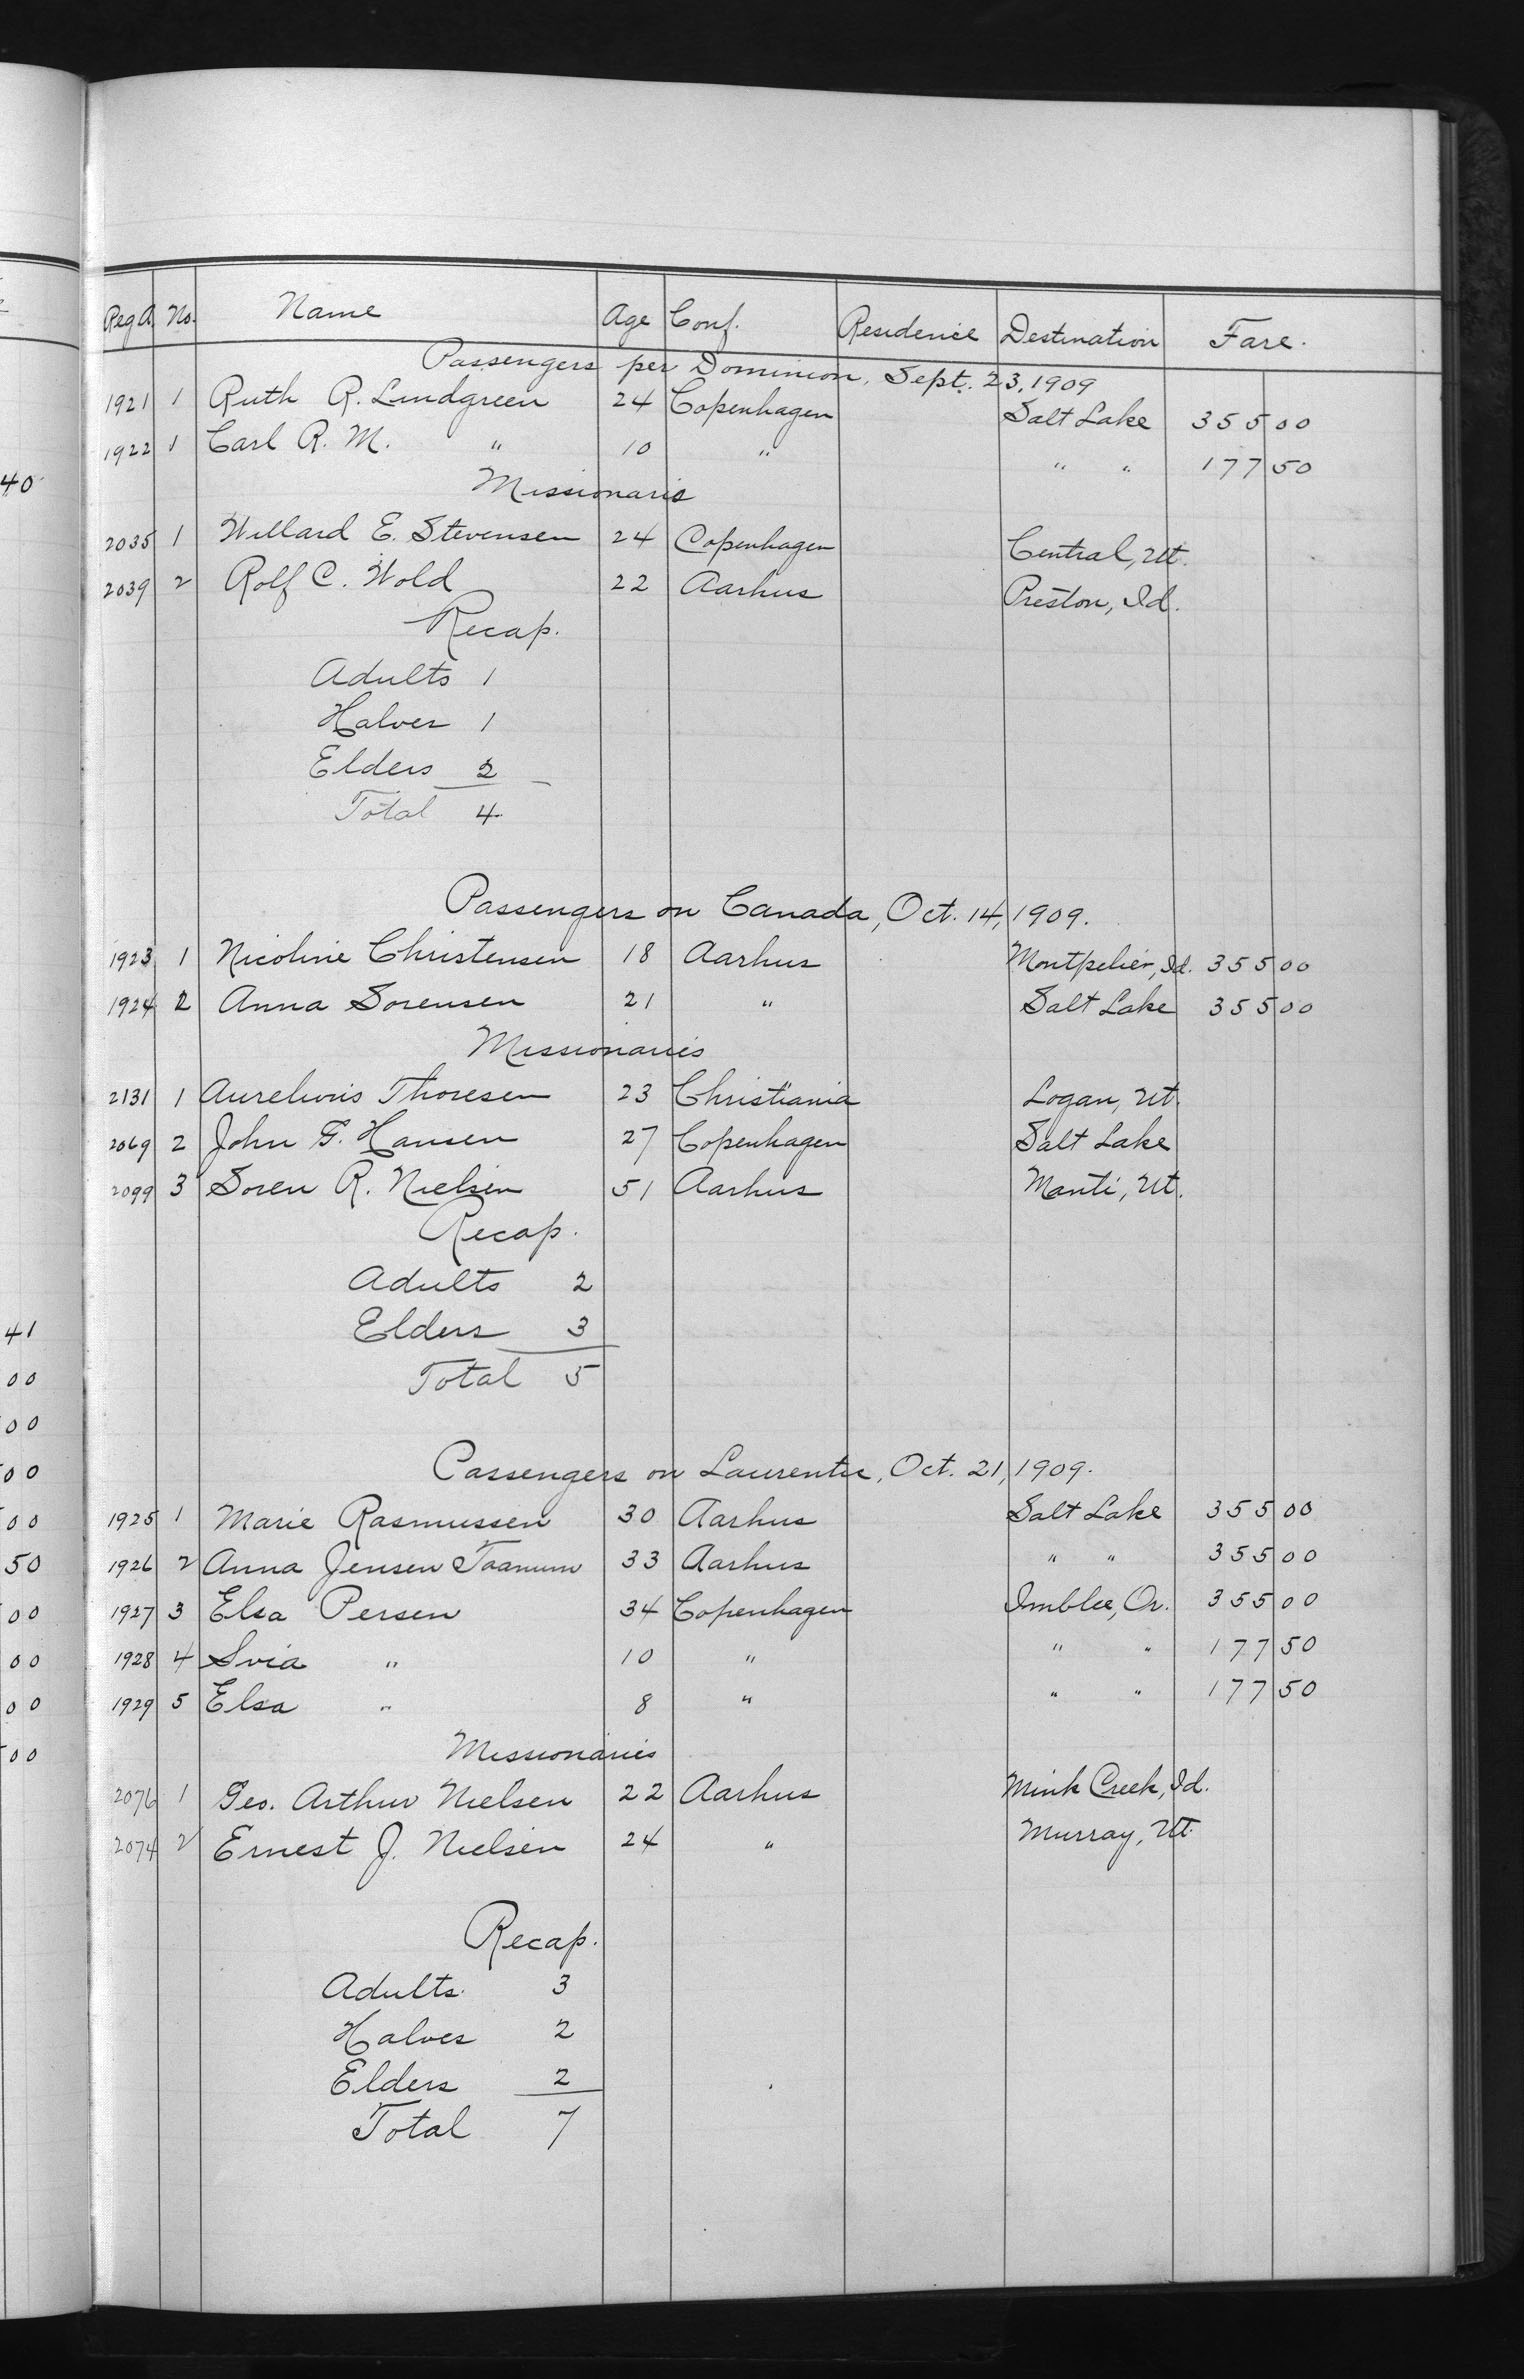 Reg A No. Name Age Conf. Residence Destination Fare.
Passengers per Dominion, Sept. 23, 1909
1921 1 Ruth R. Lundgreen 24 Copenhagen Salt Lake 355 00
1922 1 Carl R. M. " 10 " " " 177 50
40
Missionaris
2035 1 Willard E. Stevensen 24 Copenhagen Central, Ut.
2039 2 Rolf C. Wold 22 Aarhus Preston, Id.
Recap.
Adults 1
Halves 1
Elders 2
Total 4
Passengers on Canada, Oct. 14, 1909.
1923 1 Nicoline Christensen 18 Aarhus Montpelier, Id. 355 00
1924 2 Anna Sorensen 21 " Salt Lake 355 00
Missionaries
2131 1 Aurelius Thoresen 23 Christiania Logan, Ut.
2069 2 John F. Hansen 27 Copenhagen Salt Lake
2099 3 Soren R. Nielsen 51 Aarhus Manti, Ut.
Recap.
Adults 2
41
Elders 3
00
Total 5
00
00
Passengers on Laurentic, Oct. 21, 1909.
00
1925 1 Marie Rasmussen 30 Aarhus Salt Lake 355 00
50
1926 2 Anna Jensen Taanum 33 Aarhus " " 355 00
00
1927 3 Elsa Persen 34 Copenhagen Imbler, Or. 355 00
00
1928 4 Svia " 10 " " " 177 50
00
1929 5 Elsa " 8 " " " 177 50
00
Missionaries
2076 1 Geo. Arthur Nielsen 22 Aarhus Mink Creek, Id.
2074 2 Ernest J. Nielsen 24 " Murray, Ut.
Recap.
Adults 3
Halves 2
Elders 2
Total 7